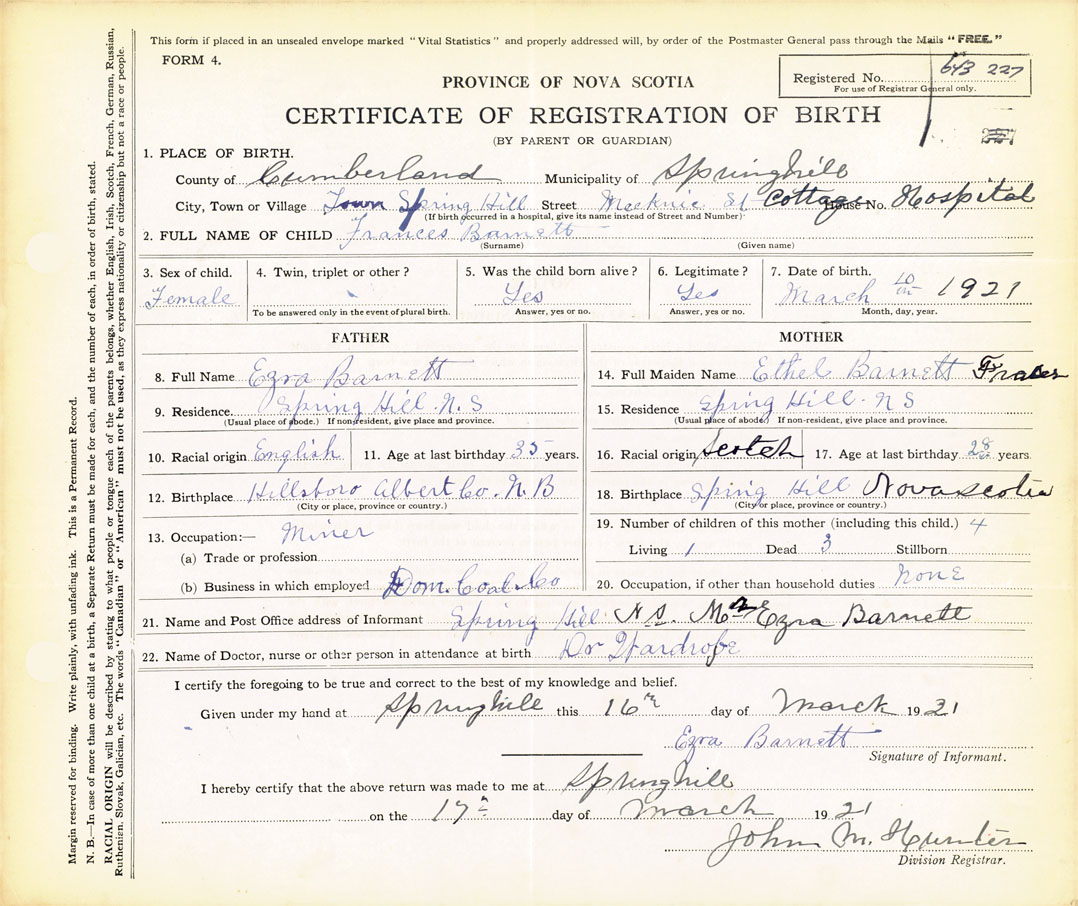 This form if placed in an unsealed envelope marked "Vital Statistics" and properly addressed will, by order of the Postmaster General pass through the Mails "FREE."
FORM 4.
Registered No. 643 227
For use of Registrar General only.
PROVINCE OF NOVA SCOTIA
CERTIFICATE OF REGISTRATION OF BIRTH
(BY PARENT OR GUARDIAN)
1. PLACE OF BIRTH.
County of Cumberland Municipality of Springhill
City, Town or Village Town Spring Hill Street St Cottage House No. Hospital
(If birth occurred in a hospital, give its name instead of Street and Number)
2. FULL NAME OF CHILD Frances Barnett
(Surname) (Given name)
3. Sex of child. 4. Twin, triplet or other? 5. Was the child born alive? 6. Legitimate? 7. Date of birth.
Female Yes Yes March 10th 1921
To be answered only in the event of plural birth. Answer, yes or no. Answer, yes or no. Month, day, year.
FATHER
8. Full Name Ezra Barnett
9. Residence. Spring Hill. N. S
(Usual place of abode.) If non-resident, give place and province.
10. Racial origin English 11. Age at last birthday 35 years.
12. Birthplace Hillsboro Albert Co. N. B
(City or place, province or country.)
13. Occupation:— Miner
(a) Trade or profession
(b) Business in which employed Dom. Coal Co
MOTHER
14. Full Maiden Name Ethel Barnett
15. Residence Spring Hill. N S
(Usual place of abode.) If non-resident, give place and province.
16. Racial origin Scotch 17. Age at last birthday 28 years.
18. Birthplace Sping Hill Nova scotia
(City or place, province or country.)
19. Number of children of this mother (including this child.) 4
Living 1 Dead 3 Stillborn
20. Occupation, if other than household duties None
21. Name and Post Office address of Informant Spring Hill N.S. Mr Ezra Barnett
22. Name of Doctor, nurse or other person in attendance at birth Dr Wardrobe
I certify the foregoing to be true and correct to the best of my knowledge and belief.
Given under my hand at Springhill this 16th day of March 1921
Ezra Barnett
Signature of Informant.
I hereby certify that the above return was made to me at Springhill
on the 17th day of March 1921
John M. Hunter
Division Registrar.
Margin reserved for binding. Write plainly, with unfading ink. This is a Permanent Record.
N. B.—In case of more than one child at a birth, a Separate Return must be made for each, and the number of each, in order of birth, stated.
RACIAL ORIGIN will be described by stating to what people or tongue each of the parents belongs, whether English, Irish, Scotch, French, German, Russian,
Ruthenian, Slovak, Galician, etc. The words "Canadian" or "American" must not be used, as they express nationality or citizenship but not a race or people.